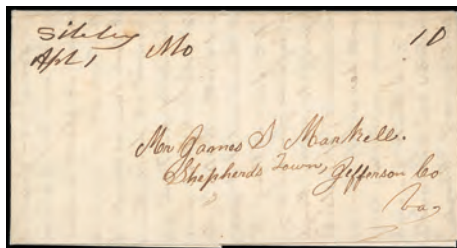 Sibley Mo 10
Apl 1
Mr James S Markell.
Shepherds Town, Jefferson Co
Va,